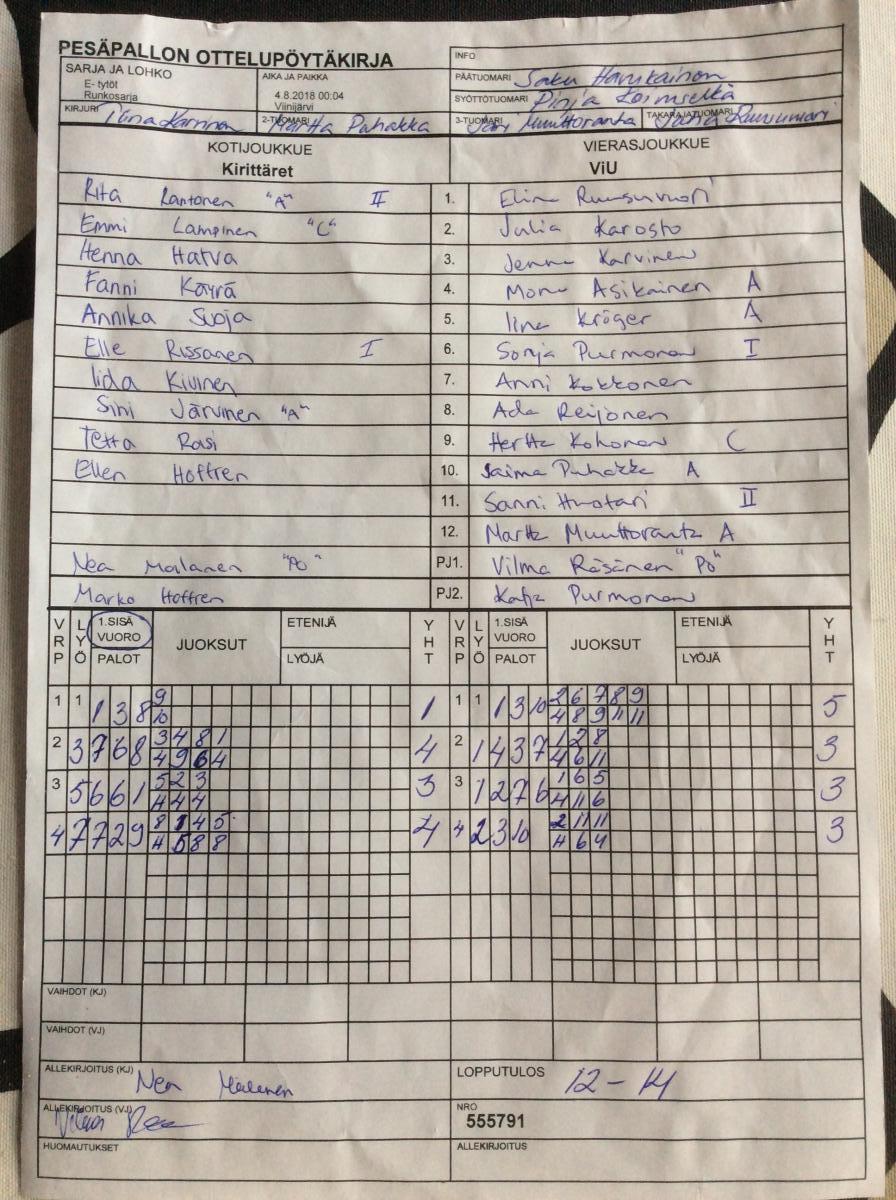 PESÄPALLON OTTELUPÖYTÄKIRJA
INFO
SARJA JA LOHKO
E- tytöt
Runkosarja
AIKA JA PAIKKA
4.8.2018 00:04
Viinijärvi
PÄÄTUOMARI Saku
SYÖTTÖTUOMARI Pinja
KIRJURI
2-TUOMARI Martta Puhakka
3-TUOMARI Jari Muuttoranta
TAKARAJATUOMARI
KOTIJOUKKUE
Kirittäret
VIERASJOUKKUE
ViU
Rita Rantonen "A" II 1. Elina Ruusuvuori
Emmi Lampinen "C" 2. Julia Karosto
Henna Hatva 3. Jenna Karvinen
Fanni Käyrä 4. Mona Asikainen A
Annika Suoja 5. Iina Kröger A
Elle Rissanen I 6. Sonja Purmonen I
Iida Kivinen 7. Anni Kokkonen
Sini Järvinen "A" 8. Ada Reijonen
Tetta Rasi 9. Hertta Kohonen C
Ellen Hoffren 10. Saima Puhakka A
11. Sanni Huotari II
12. Martta Muuttoranta A
Nea Malanen PJ1. Vilma Räsänen "PÖ"
Marko Hoffren PJ2. Katja Purmonen
VRP LYÖ 1.SISÄ VUORO PALOT JUOKSUT ETENIJÄ LYÖJÄ YHT VRP LYÖ 1.SISÄ VUORO PALOT JUOKSUT ETENIJÄ LYÖJÄ YHT
9 2 6 7 8 9
1 1 1 3 8 1 1 1 1 3 10 5
10 4 8 9 11 11
3 4 8 1 1 2 8
2 3 7 6 8 4 2 1 4 3 7 3
4 9 6 4 4 6 11
5 2 3 1 6 5
3 5 6 6 1 3 3 1 2 7 6 3
4 4 4 4 11 6
8 1 4 5 2 11 11
4 7 7 2 9 4 4 2 3 10 3
4 5 8 8 4 6 4
VAIHDOT (KJ)
VAIHDOT (VJ)
ALLEKIRJOITUS (KJ) Nea Malanen
LOPPUTULOS 12 - 14
ALLEKIRJOITUS (VJ)
NRO
555791
HUOMAUTUKSET
ALLEKIRJOITUS